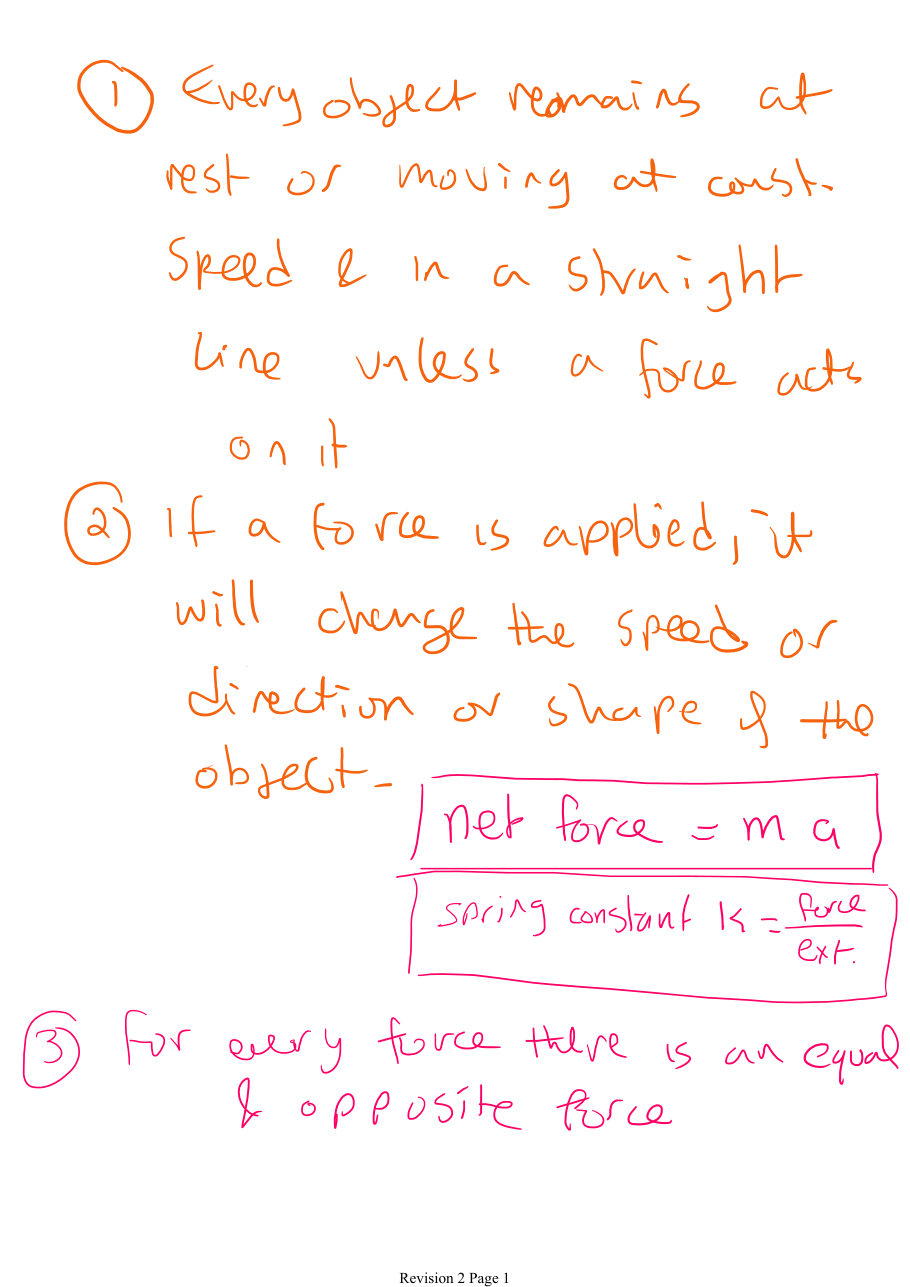 ① Every object remains at
rest or moving at const.
Speed & in a straight
line unless a force acts
on it
② If a force is applied, it
will change the speed or
direction or shape of the
object.
net force = m a
spring constant k = force / ext.
③ For every force there is an equal
& opposite force
Revision 2 Page 1